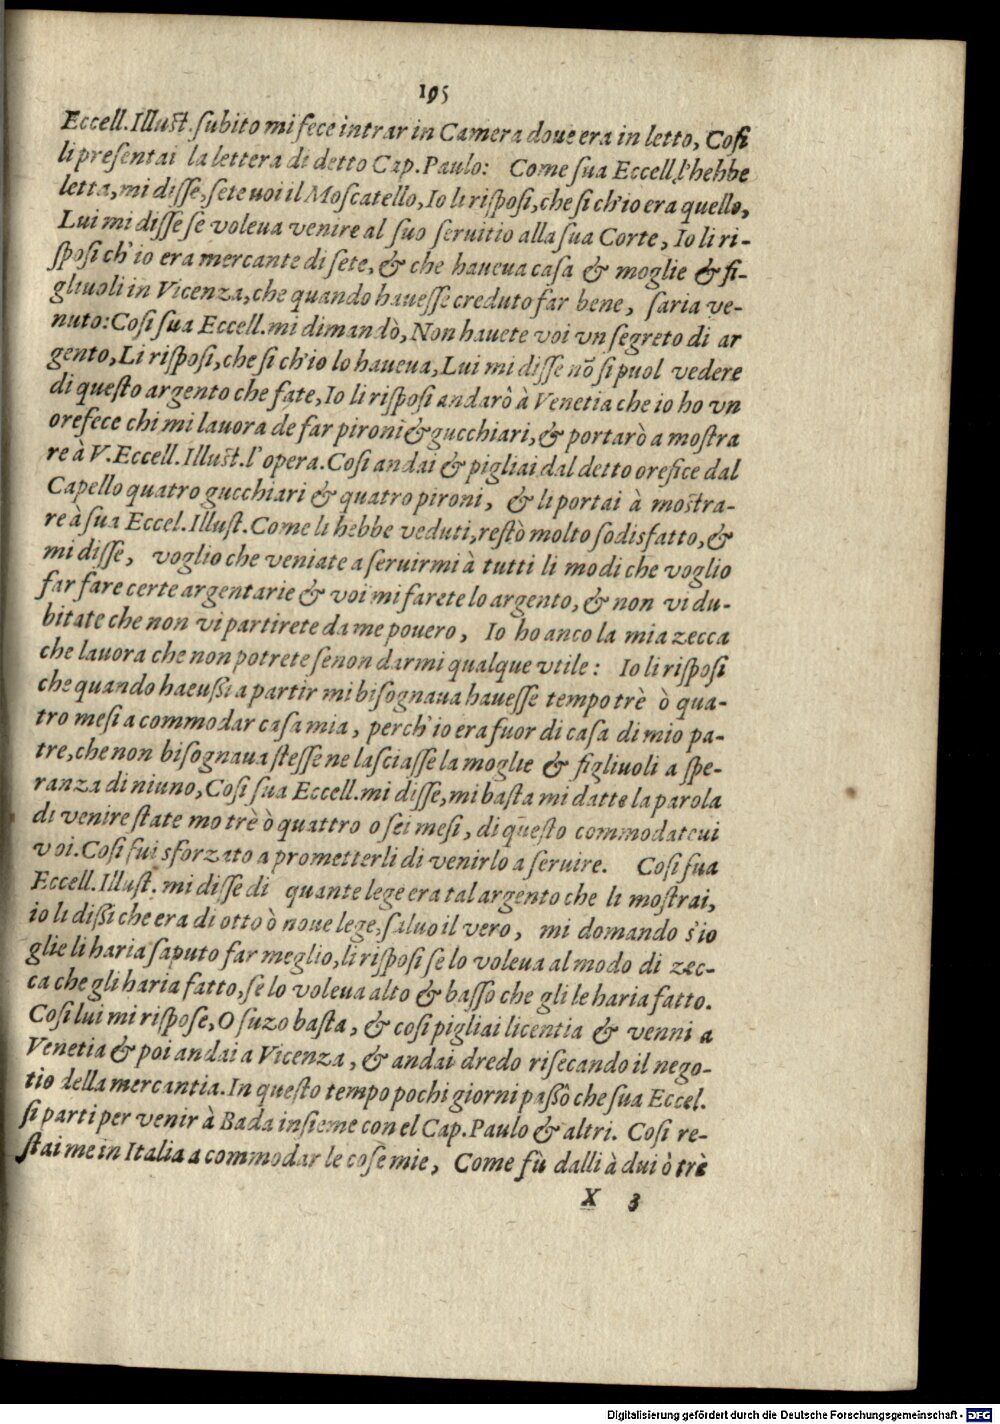 195
Eccell. Illust. ſubito mi fece intrar in Camera doue era in letto, Coſi
li preſentai la lettera di detto Cap. Paulo: Come ſua Eccell. l'hebbe
letta, mi diſſe, ſete uoi il Moscatello, Io li riſpoſi, che ſi ch'io era quello,
Lui mi diſſe ſe voleua venire al ſuo ſeruitio alla ſua Corte, Io li ri-
ſpoſi ch'io era mercante di ſete, & che haueua caſa & moglie & fi-
gliuoli in Vicenza, che quando haueſſe creduto far bene, ſaria ve-
nuto: Coſi ſua Eccell. mi dimandò, Non hauete voi vn ſegreto di ar
gento, Li riſpoſi, che ſi ch'io lo haueua, Lui mi diſſe nõ ſi puol vedere
di queſto argento che fate, Io li riſpoſi andarò à Venetia che io ho vn
orefece chi mi lauora de far pironi & gucchiari, & portarò a moſtra
re à V. Eccell. Illuſt. l'opera. Coſi andai & pigliai dal detto orefice dal
Capello quatro gucchiari & quatro pironi, & li portai à moſtra-
re à ſua Eccel. Illuſt. Come li hebbe veduti, reſtò molto ſodisfatto, &
mi diſſe, voglio che veniate a ſeruirmi à tutti li modi che voglio
far fare certe argentarie & voi mi farete lo argento, & non vi du-
bitate che non vi partirete da me pouero, Io ho anco la mia zecca
che lauora che non potrete ſenon darmi qualque vtile: Io li riſpoſi
che quando haeuſſi a partir mi biſognaua haueſſe tempo trè ò qua-
tro meſi a commodar caſa mia, perch'io era fuor di caſa di mio pa-
tre, che non biſognaua ſteſſe ne laſciaſſe la moglie & figliuoli a ſpe-
ranza di niuno, Coſi ſua Eccell. mi diſſe, mi baſta mi datte la parola
di venire ſtate mo trè ò quattro o ſei meſi, di queſto commodateui
voi. Coſi fui sforzato a prometterli di venirlo a ſeruire. Coſi ſua
Eccell. Illuſt. mi diſſe di quante lege era tal argento che li moſtrai,
io li diſſi che era di otto ò noue lege, ſaluo il vero, mi domando s'io
glie li haria ſaputo far meglio, li riſpoſi ſe lo voleua al modo di zec-
ca che gli haria fatto, ſe lo voleua alto & baſſo che gli le haria fatto.
Coſi lui mi riſpoſe, O ſuzo baſta, & coſi pigliai licentia & venni a
Venetia & poi andai a Vicenza, & andai dredo riſecando il nego-
tio della mercantia. In queſto tempo pochi giorni paſſò che ſua Eccel.
ſi parti per venir à Bada inſieme con el Cap. Paulo & altri. Coſi re-
ſtai me in Italia a commodar le coſe mie, Come fù dalli à dui ò trè
X 3
Digitalisierung gefördert durch die Deutsche Forschungsgemeinschaft - DFG